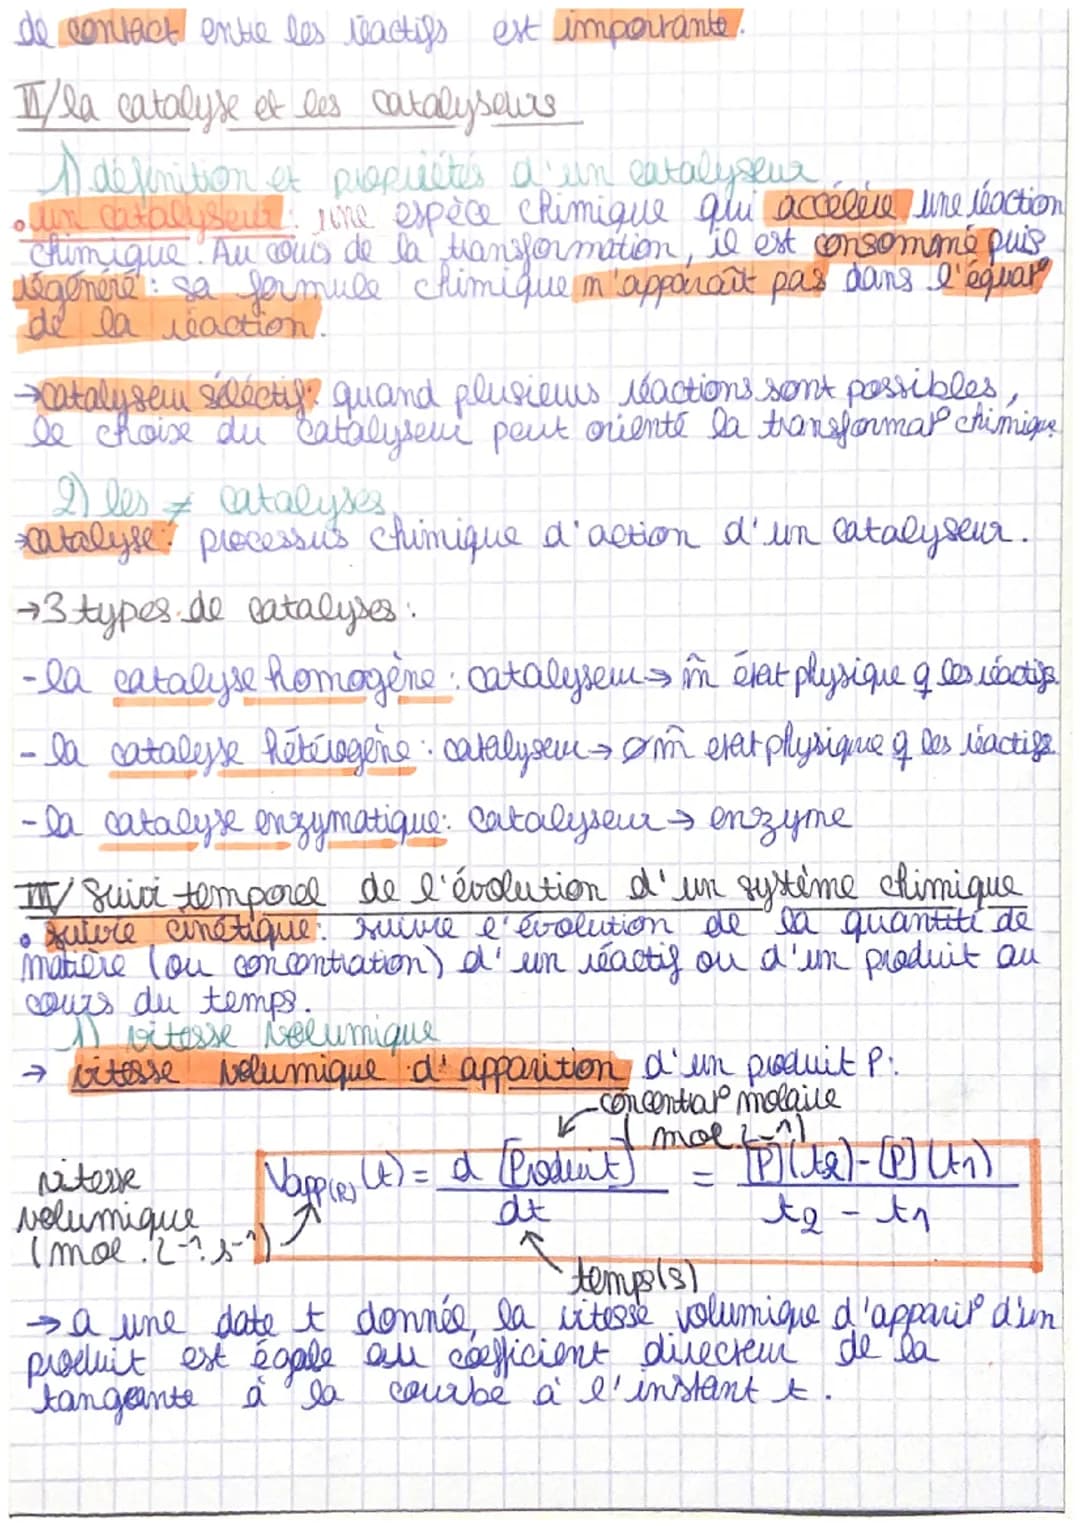 de contact entre les réactifs est importante.
II/ la catalyse et les catalyseurs
1) définition et propriétés d'un catalyseur
• un catalyseur : une espèce chimique qui accélère une réaction
chimique. Au cours de la transformation, il est consommé puis
régénéré : sa formule chimique n'apparaît pas dans l'équat°
de la réaction.
→ catalyseur séléctif : quand plusieurs réactions sont possibles,
le choix du catalyseur peut orienté la transformat° chimique
2) les ≠ catalyses
→ catalyse : processus chimique d'action d'un catalyseur.
→ 3 types de catalyses :
- la catalyse homogène : catalyseur → m̂ état physique q les réactifs.
- la catalyse hétérogène : catalyseur → ∅ m̂ état physique q les réactifs
- la catalyse enzymatique : catalyseur → enzyme
III/ Suivi temporel de l'évolution d'un système chimique
• suivre cinétique : suivre l'évolution de la quantité de
matière (ou concentration) d'un réactif ou d'un produit au
cours du temps.
1) vitesse volumique
→ vitesse volumique d'apparition d'un produit P :
concentrat° molaire
(mol.L⁻¹)
vitesse
volumique
(mol.L⁻¹.s⁻¹)
Vapp(R) (t) = d [Produit] / dt = [P](t2) - [P](t1) / t2 - t1
temps(s)
→ a une date t donnée, la vitesse volumique d'apparit° d'un
produit est égale au coefficient directeur de la
tangante à la courbe à l'instant t.